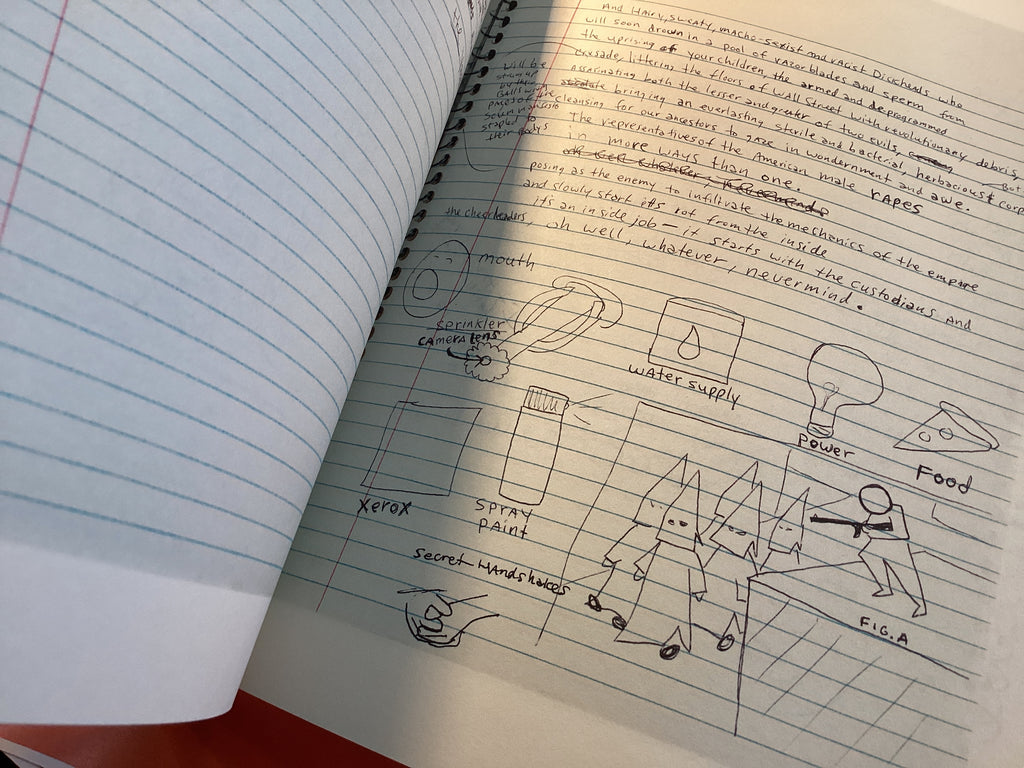 And Hairy, sweaty, macho-sexist and racist Dickheads who
will soon drown in a pool of razorblades and sperm from
the uprising of your children, the armed and deprogrammed
crusade, littering the floors of WAll Street with revolutionary debris,
assasinating both the lesser and greater of two evils,
bringing an everlasting sterile and bacterial, herbacious & corp
cleansing for our ancestors to gaze in wondernment and awe.
The representatives of the American male rapes
in more ways than one.
will be
strung up
by their
Balls with
pages of
stapled to
their bodys
posing as the enemy to infilitrate the mechanics of the empire
and slowly start its rot from the inside
it's an inside job – it starts with the custodians And
the cheerleaders,
oh well, whatever, nevermind.
mouth
sprinkler
camera lens
water supply
power
Food
xerox
SPRAY
PAint
secret HAndshakes
FIG.A